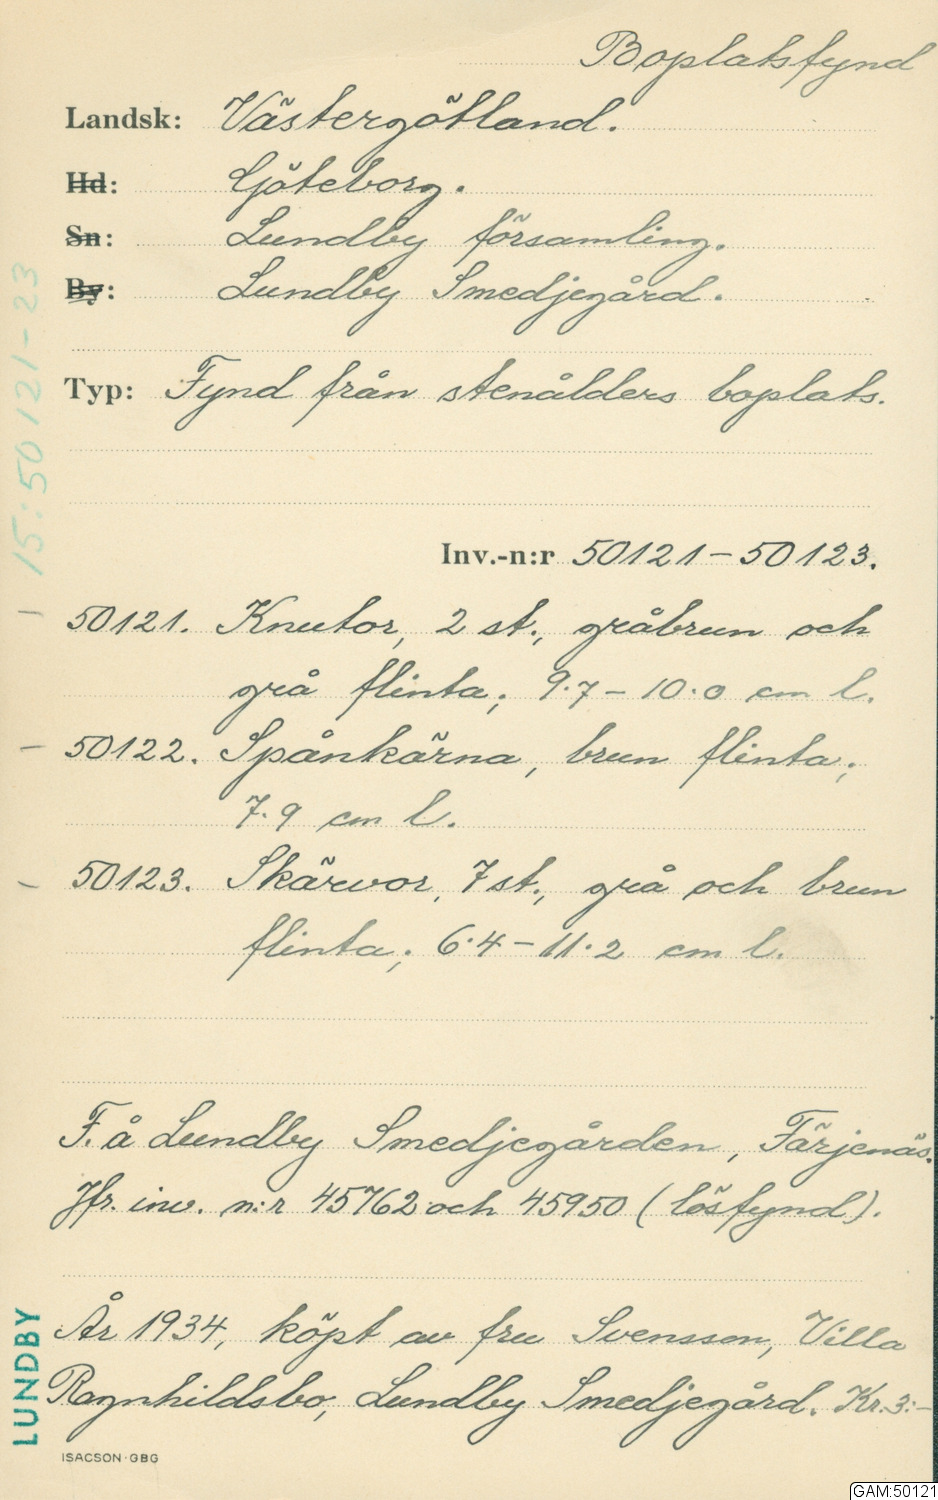 Boplatsfynd
Landsk: Västergötland.
Hd: Göteborg.
Sn: Lundby församling.
By: Lundby Smedjegård.
Typ: Fynd från stenålders boplats.
Inv.-n:r 50121-50123.
50121. Knutor, 2 st., gråbrun och
grå flinta; 9.7-10.0 cm l.
50122. Spånkärna, brun flinta;
7.9 cm l.
50123. Skärvor, 7 st., grå och brun
flinta; 6.4-11.2 cm l.
F. å Lundby Smedjegården, Färjenäs.
Jfr. inv. n:r 45762 och 45950 (lösfynd).
År 1934, köpt av fru Svensson, Villa
Ragnhildsbo, Lundby Smedjegård. Kr. 3:-
ISACSON·GBG
15:50121-23
LUNDBY
GAM:50121